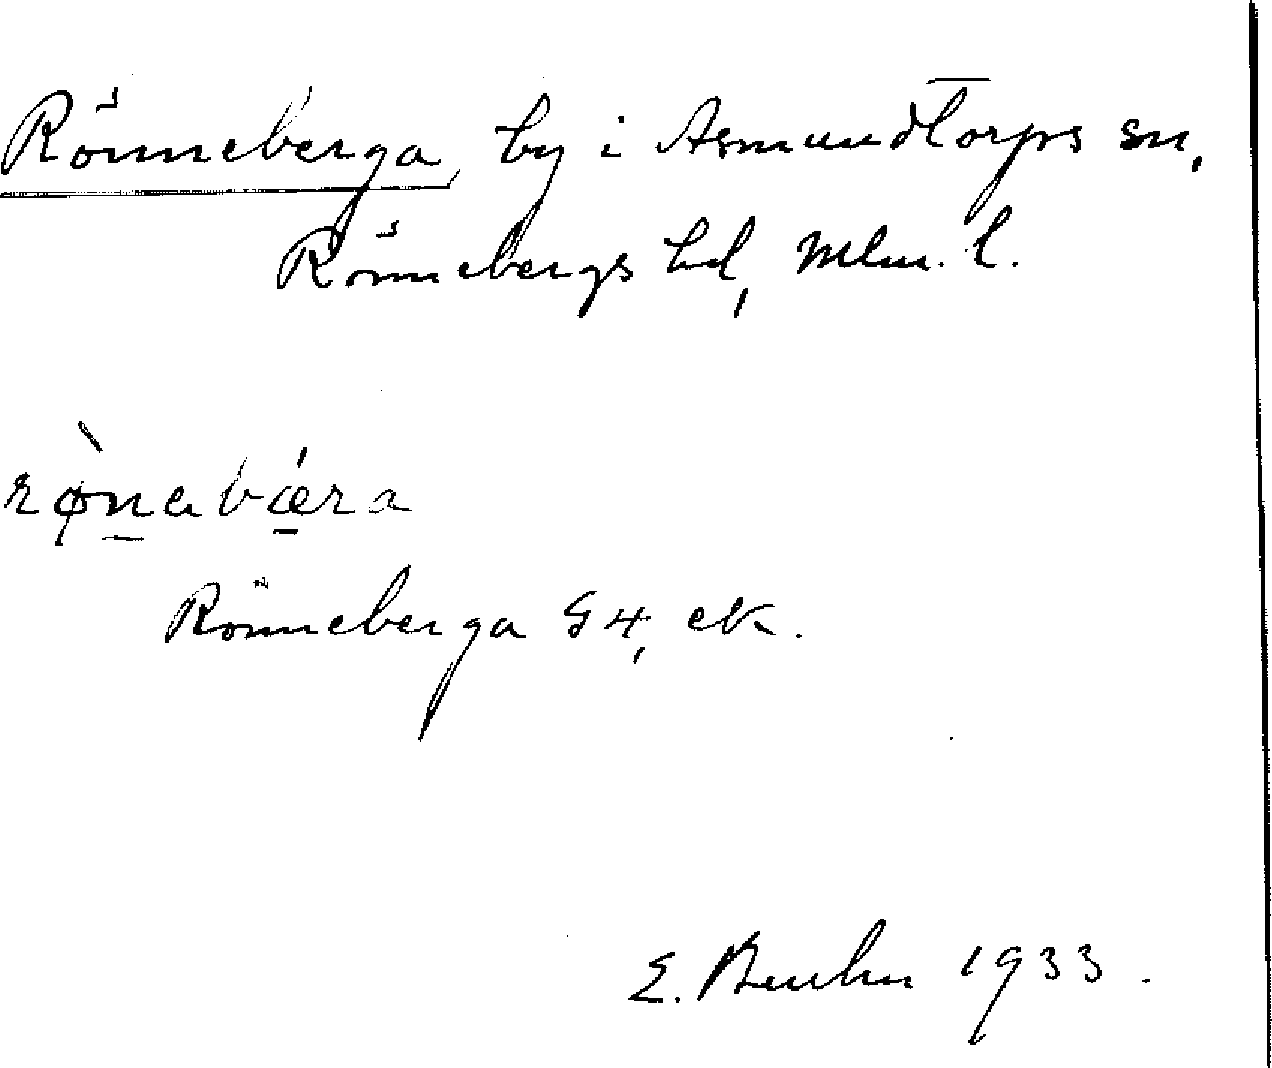 Rönneberga, by i Asmundtorps sn,
Rönnebergs hd, Mlm. l.
rø̀nabǽra
Rönneberga G4, ek.
E. Bruhn 1933.